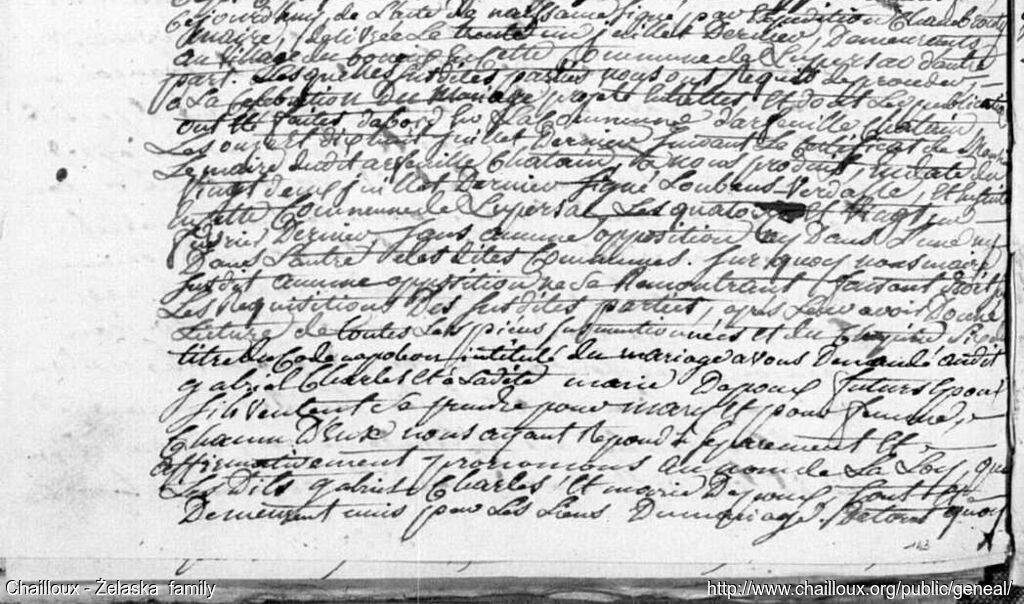 de l'acte de naissance signé par expédition
maire, delivrée le trente un juillet Dernier, Demeurants
au village du en Cette Commune de Lupersac d'autre
part. Lesquelles susdites parties nous ont Requis de proceder
a La Celebration du mariage projeté entrelles Et dont Les publications
ont Eté faites dabord En La Commune darfeuille Chatain
Les onze et dix juillet Dernier suivant Le Certificat de
Le maire dudit arfeuille Chatain, a nous produit, En date du
vingt deux juillet Dernier signé Loubens-Verdalle, Et
En Cette Commune de Lupersac, Les quatorze et vingt un
Dernier sans aucune opposition ny Dans L'une ny
Dans L'autre desdites Communes. sur quoy nous maire
susdit aucune opposition ne se Remontrant faisant droit
Les Requisitions Des susdites parties, après Leur avoir Donné
Lecture de toutes Les pieces susmentionnées et du Chapitre Six du
titre du Code napoleon intitulé du mariage avons Demandé audit
gabriel Charles Et a Ladite marie Depoux futurs Epoux
s'ils veulent se prendre pour mary Et pour femme,
Chacun D'Eux nous ayant Repondu separement Et
affirmativement prononçons au nom de La Loy, que
Les dits gabriel Charles Et marie Depoux, sont Et
Demeurent unis par Les Liens Du mariage. De tout quoy
143
Chailloux - Żelaska family
http://www.chailloux.org/public/geneal/